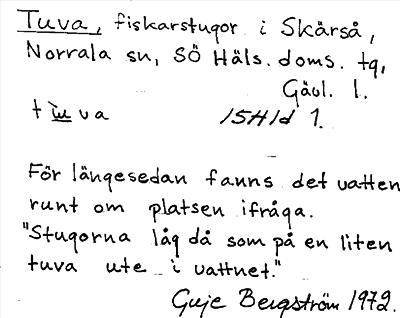 Tuva, fiskarstugor i Skärså,
Norrala sn, SÖ Häls. doms. tg,
Gävl. l.
tuva 15H1d 1.
För längesedan fanns det vatten
runt om platsen ifråga.
"Stugorna låg då som på en liten
tuva ute i vattnet."
Guje Bergström 1972.